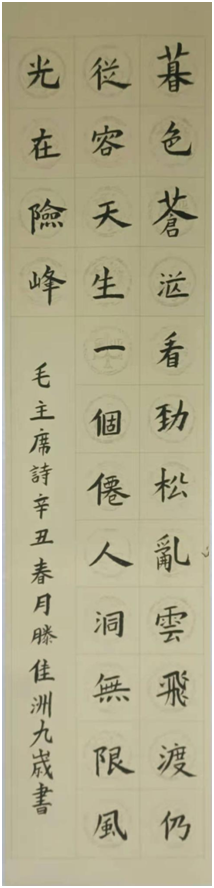 暮色蒼茫看勁松亂雲飛渡仍
從容天生一個僊人洞無限風
光在險峰
毛主席詩辛丑春月滕佳洲九歲書